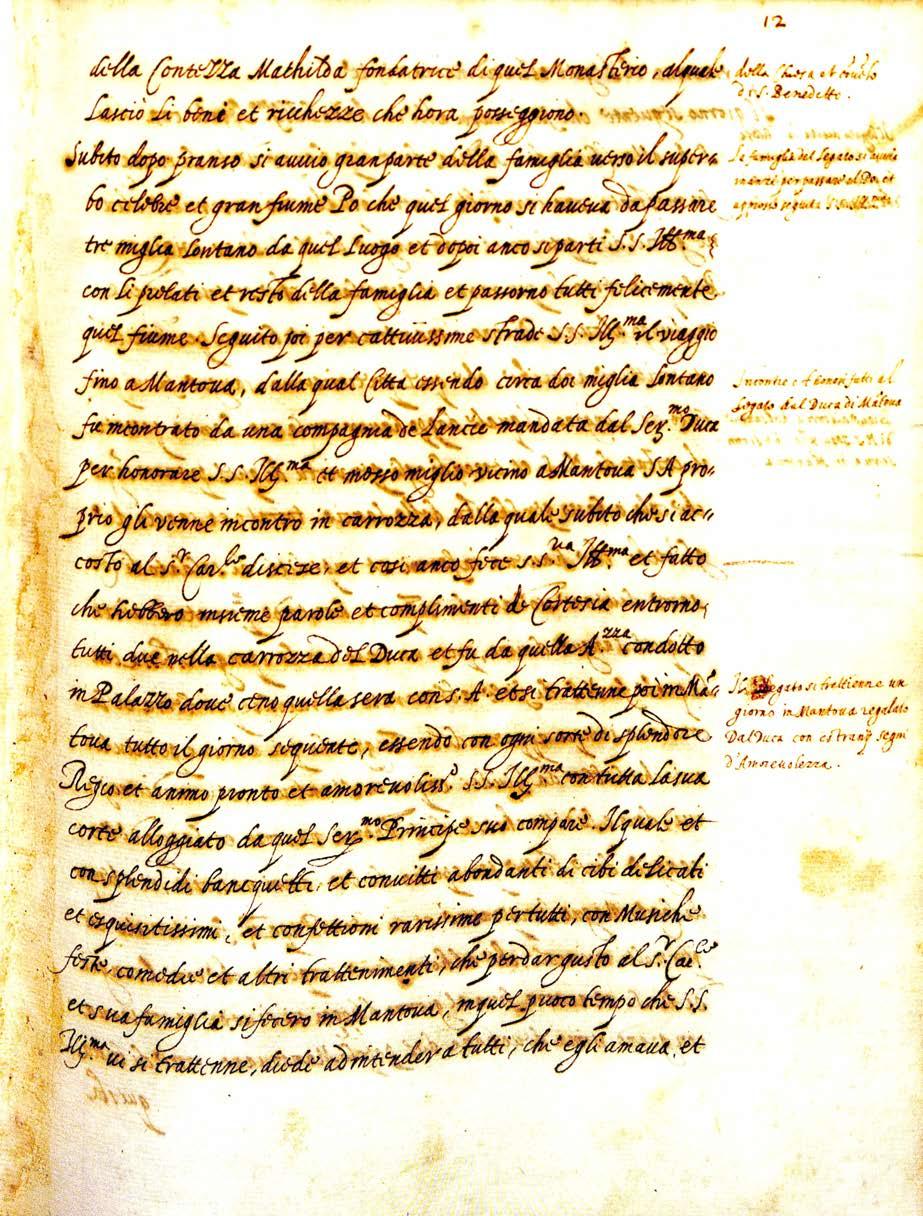 12
della Contezza Mathilda fondatrice di quel Monasterio, alquale
Lasciò Li beni et ricchezze che hora posseggiono.
Subito dopo pranso si auuiò gran parte della famiglia uerso il super=
bo celebre et gran fiume Po che quel giorno si haueua da passare
tre miglia Lontano da quel Luogo et dopoi anco si partì S.S. Ill.ma
con li prelati et resto della famiglia et passorno tutti felicemente
quel fiume. Seguitò poi per cattiuissime strade S.S. Ill.ma il viaggio
fino a Mantoua, dalla qual Città essendo circa doi miglia Lontano
fu incontrato da una compagnia de Lancie mandata dal Ser.mo Duca
per honorare S.S. Ill.ma et mezzo miglio vicino a Mantoua S.A. pro=
prio gli venne incontro in carrozza, dalla quale subito che si ac=
costò al S.r Car.le discese, et così anco fece S.S.ria Ill.ma et fatto
che hebbero insieme parole et complimenti de Cortesia entrorno
tutti due nella carrozza del Duca et fu da quella A.zza condotto
in Palazzo doue cenò quella sera con S. A. et si trattenne poi in Ma=
toua tutto il giorno sequente, essendo con ogni sorte di splendore
Regio et animo pronto et amoreuoliss.o S.S. Ill.ma con tutta la sua
corte alloggiato da quel Ser.mo Principe suo compare. Il quale et
con splendidi bancquetti, et conuitti abondanti di cibi delicati
et esquisitissimi, et confettioni rarissime per tutti, con Musiche
feste, comedie et altri trattenimenti, che per dar gusto al S.r Car.le
et sua famiglia si fecero in Mantoua, in quel puoco tempo che S.S.
Ill.ma ui si trattenne, diede ad intender a tutti, che egli amaua, et
della Chiesa et
di S. Benedetto.
La famiglia del Legato si auuia
inanzi per passare il Po, et
Incontro et honori fatti al
Legato dal Duca di Mantoua
Il Legato si trettienne un
giorno in Mantoua regalato
Dal Duca con estranij segni
d'Amoreuolezza.